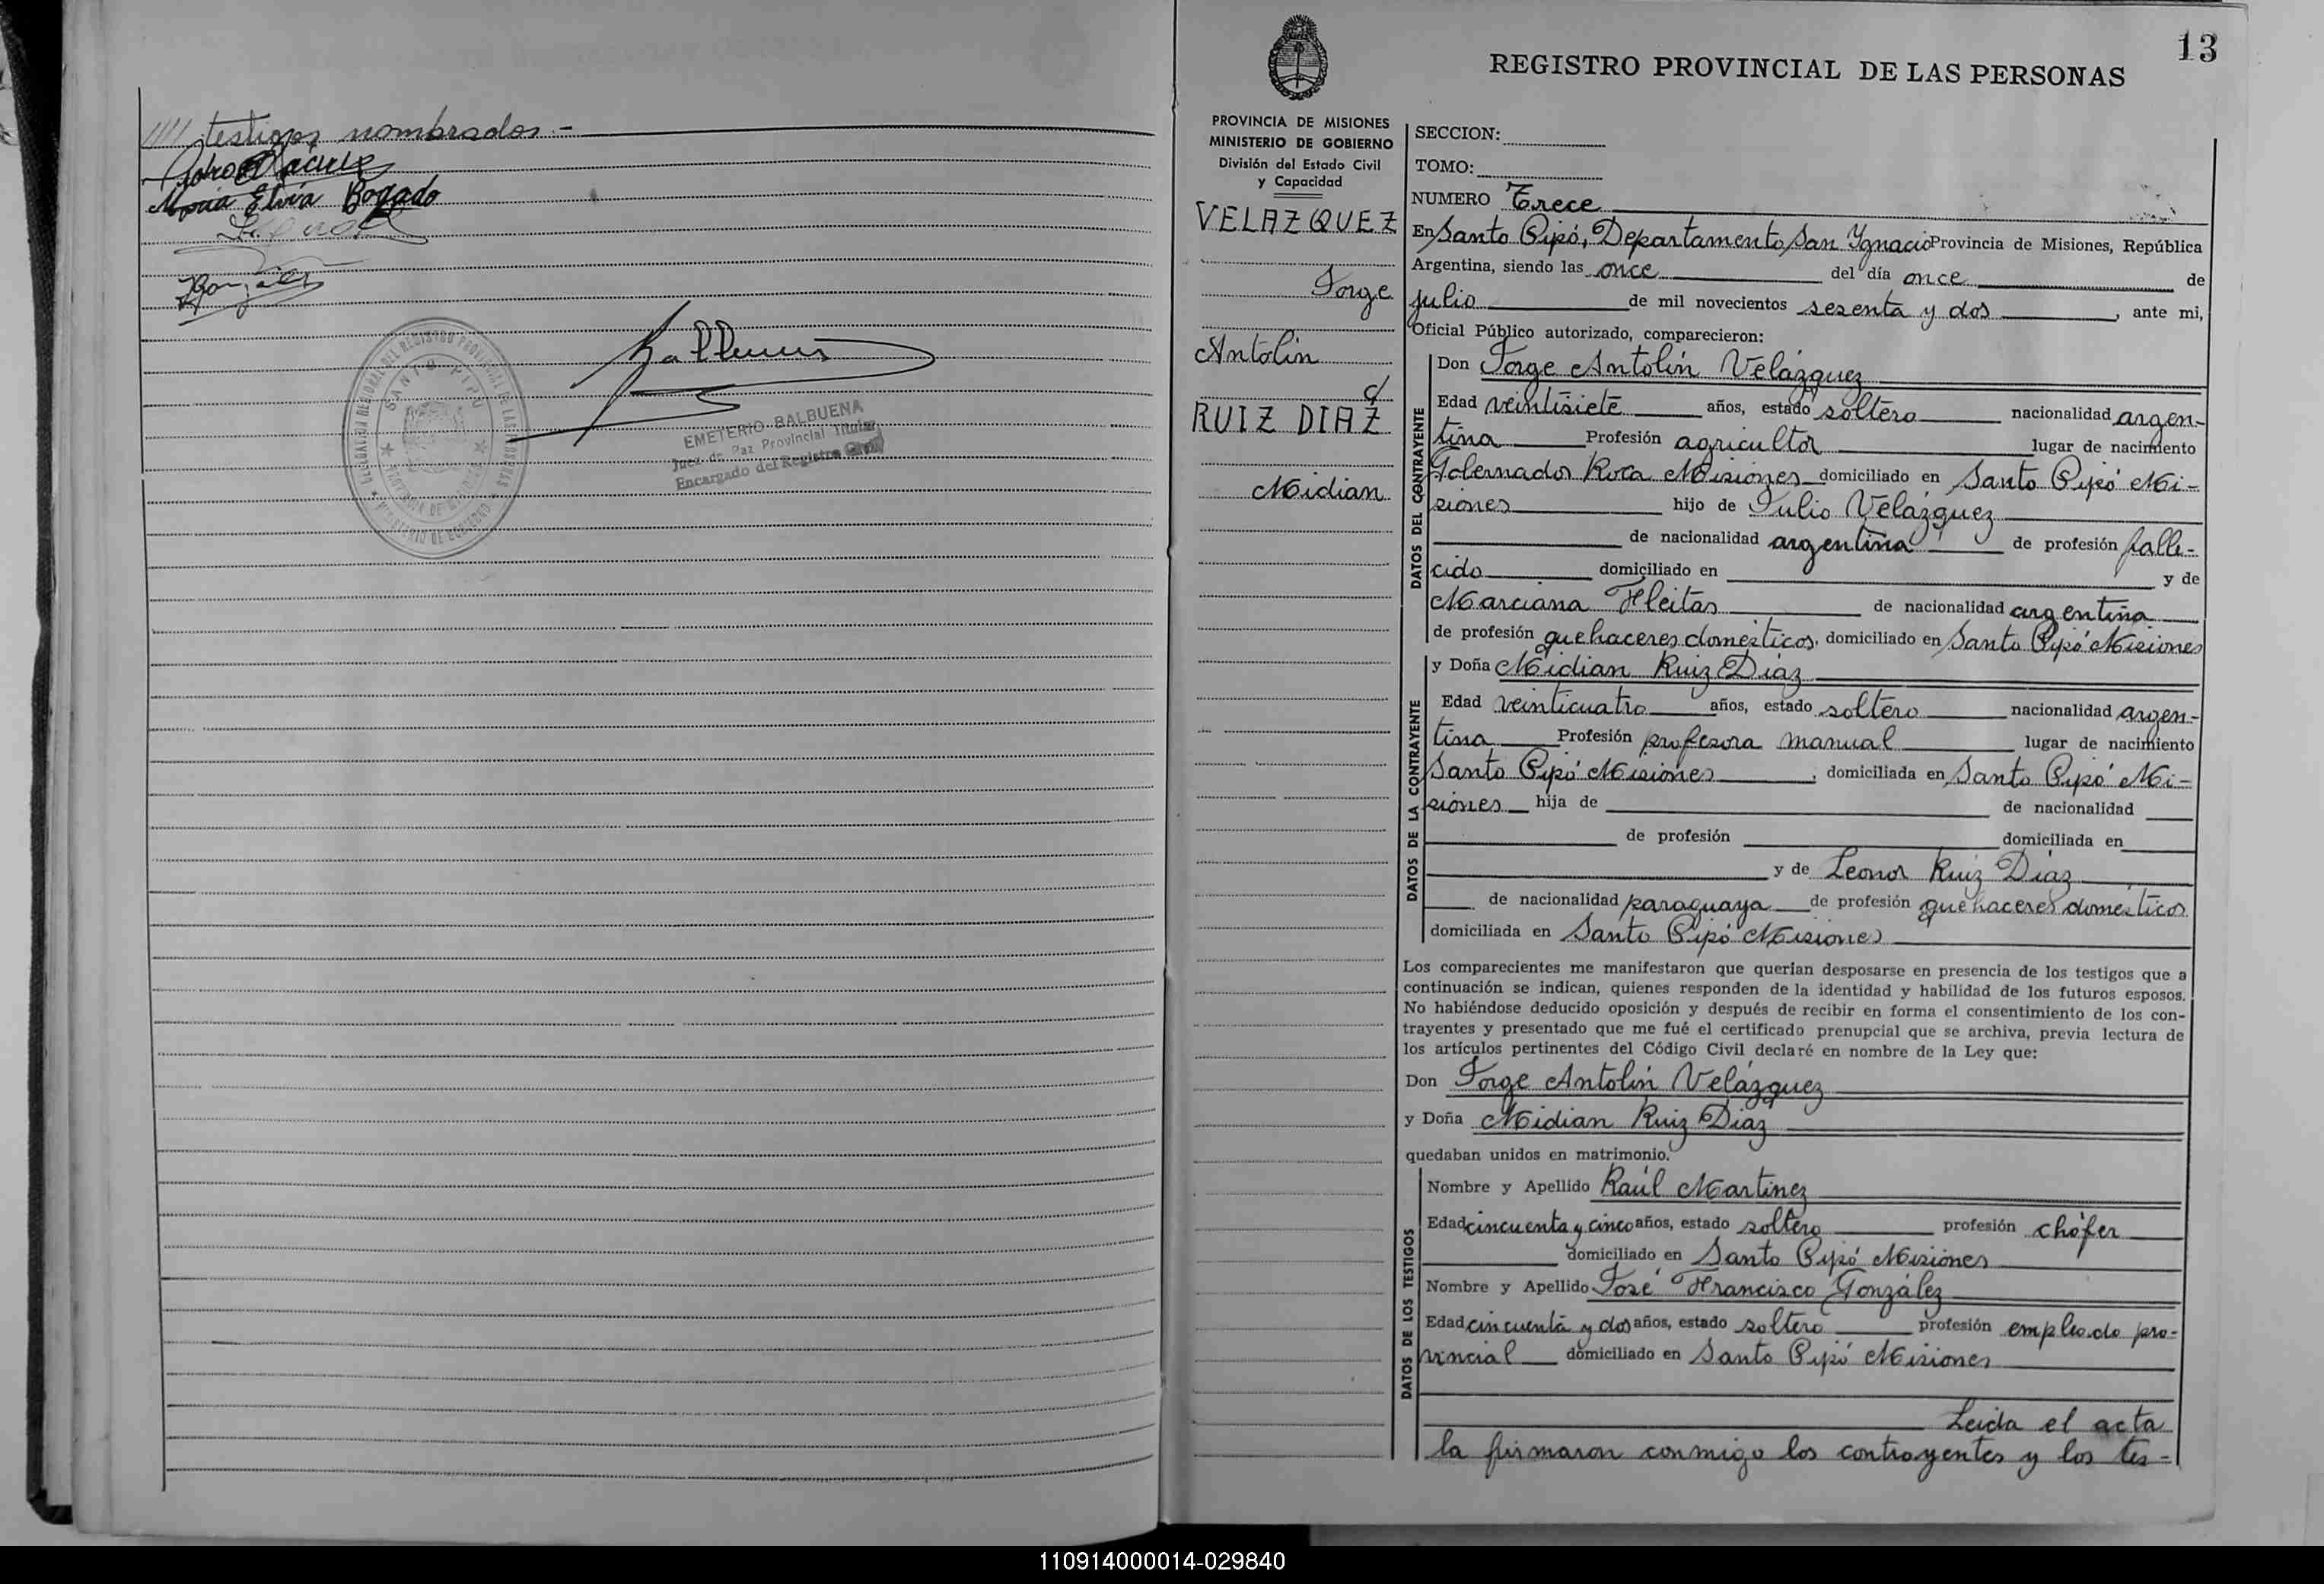 //// testigos nombrados.-
Maria Elvia Bogado
González
DELEGACION REGIONAL DEL REGISTRO PROVINCIAL DE LAS PERSONAS
SANTO PIPO
PROVINCIA DE MISIONES
MINISTERIO DE GOBIERNO
EMETERIO BALBUENA
Juez de Paz Provincial Titular
Encargado del Registro Civil
13
REGISTRO PROVINCIAL DE LAS PERSONAS
PROVINCIA DE MISIONES
MINISTERIO DE GOBIERNO
División del Estado Civil
y Capacidad
VELAZQUEZ
Jorge
Antolin
c/
RUIZ DIAZ
Midian
SECCION:
TOMO:
NUMERO Trece
En Santo Pipó, Departamento San Ygnacio Provincia de Misiones, República
Argentina, siendo las once del día once de
julio de mil novecientos sesenta y dos, ante mi,
Oficial Público autorizado, comparecieron:
DATOS DEL CONTRAYENTE
Don Jorge Antolín Velázquez
Edad veintisiete años, estado soltero nacionalidad argen-
tina Profesión agricultor lugar de nacimiento
Gobernador Roca Misiones domiciliado en Santo Pipó Mi-
siones hijo de Julio Velázquez
de nacionalidad argentina de profesión falle-
cido domiciliado en y de
Marciana Fleitas de nacionalidad argentina
de profesión quehaceres domésticos, domiciliado en Santo Pipó Misiones
DATOS DE LA CONTRAYENTE
y Doña Midian Ruiz Díaz
Edad veinticuatro años, estado soltero nacionalidad argen-
tina Profesión profesora manual lugar de nacimiento
Santo Pipó Misiones, domiciliada en Santo Pipó Mi-
siones hija de de nacionalidad
de profesión domiciliada en
y de Leonor Ruiz Díaz
de nacionalidad paraguaya de profesión quehaceres domésticos
domiciliada en Santo Pipó Misiones
Los comparecientes me manifestaron que querían desposarse en presencia de los testigos que a
continuación se indican, quienes responden de la identidad y habilidad de los futuros esposos.
No habiéndose deducido oposición y después de recibir en forma el consentimiento de los con-
trayentes y presentado que me fué el certificado prenupcial que se archiva, previa lectura de
los artículos pertinentes del Código Civil declaré en nombre de la Ley que:
Don Jorge Antolín Velázquez
y Doña Midian Ruiz Díaz
quedaban unidos en matrimonio.
DATOS DE LOS TESTIGOS
Nombre y Apellido Raúl Martinez
Edad cincuenta y cinco años, estado soltero profesión chófer
domiciliado en Santo Pipó Misiones
Nombre y Apellido José Francisco González
Edad cincuenta y dos años, estado soltero profesión empleado pro-
vincial domiciliado en Santo Pipó Misiones
Leida el acta
la firmaron conmigo los contrayentes y los tes-
110914000014-029840